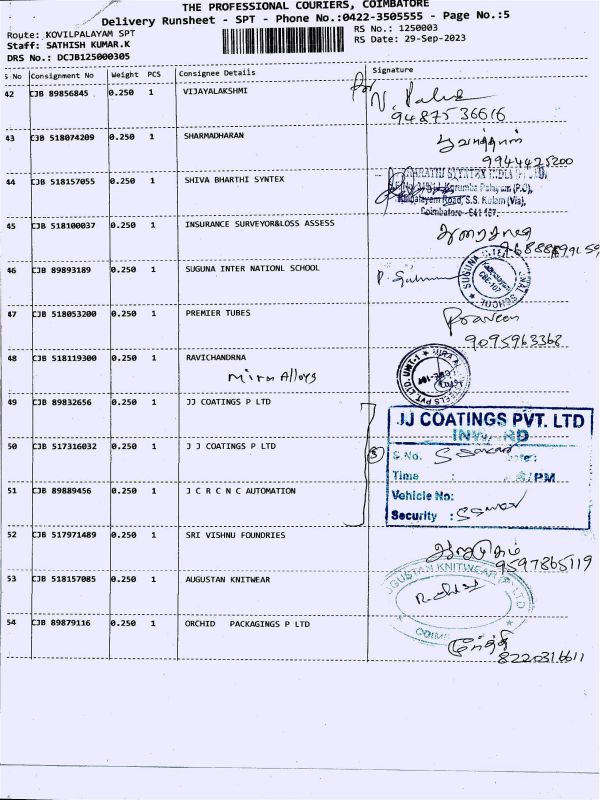 THE PROFESSIONAL COURIERS, COIMBATORE
Delivery Runsheet - SPT - Phone No.:0422-3505555 - Page No.:5
Route: KOVILPALAYAM SPT
RS No.: 1250003
Staff: SATHISH KUMAR.K
RS Date: 29-Sep-2023
DRS No.: DCJB125000305
S No Consignment No Weight PCS Consignee Details Signature
42 CJB 89856845 0.250 1 VIJAYALAKSHMI
9487536616
43 CJB 518074209 0.250 1 SHARMADHARAN
9944425200
44 CJB 518157055 0.250 1 SHIVA BHARTHI SYNTEX
Kurumba Palayam (P.O),
Road, S.S. Kulam (Via),
Coimbatore - 641 107.
45 CJB 518100037 0.250 1 INSURANCE SURVEYOR&LOSS ASSESS
46 CJB 89893189 0.250 1 SUGUNA INTER NATIONL SCHOOL
SUGUNA SCHOOL
47 CJB 518053200 0.250 1 PREMIER TUBES
Praveen
9095963368
48 CJB 518119300 0.250 1 RAVICHANDRNA
Mira Alloys
49 CJB 89832656 0.250 1 JJ COATINGS P LTD
JJ COATINGS PVT. LTD
INWARD
50 CJB 517316032 0.250 1 J J COATINGS P LTD
S.No. Date:
Time : /PM
51 CJB 89889456 0.250 1 J C R C N C AUTOMATION
Vehicle No:
Security :
52 CJB 517971489 0.250 1 SRI VISHNU FOUNDRIES
9597865119
53 CJB 518157085 0.250 1 AUGUSTAN KNITWEAR
AUGUSTAN KNITWEAR (P) LTD
54 CJB 89879116 0.250 1 ORCHID PACKAGINGS P LTD
8220316611